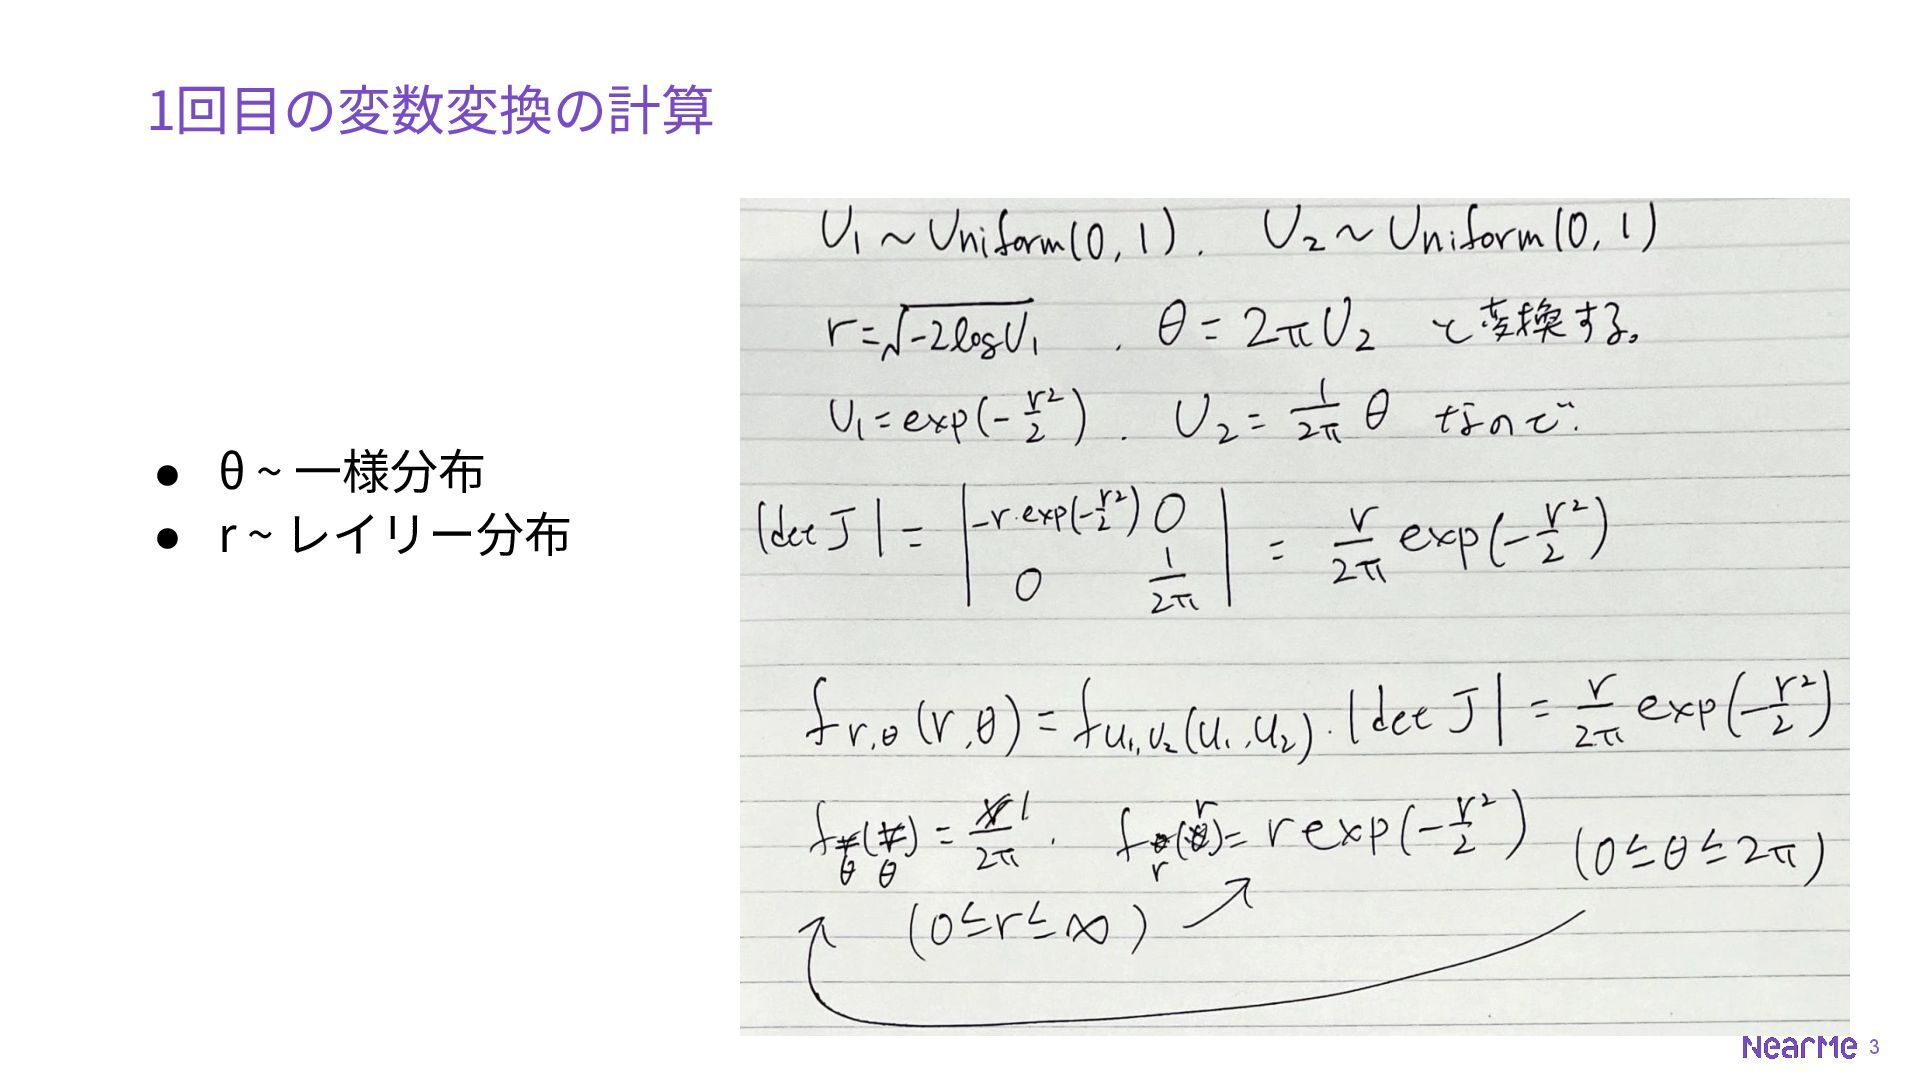 1回目の変数変換の計算
● θ ~ 一様分布
● r ~ レイリー分布
U₁ ~ Uniform(0, 1). U₂ ~ Uniform(0, 1)
r = √(-2logU₁) , θ = 2πU₂ と変換する。
U₁ = exp(-r²/2). U₂ = 1/2π θ なので.
|det J| = | -r·exp(-r²/2) 0 | = r/2π exp(-r²/2)
| 0 1/2π |
f r,θ (r,θ) = f U₁,U₂ (U₁,U₂)·|det J| = r/2π exp(-r²/2)
f θ (θ) = 1/2π . f r (r) = r exp(-r²/2) (0 ≤ θ ≤ 2π)
(0 ≤ r ≤ ∞)
NearMe 3